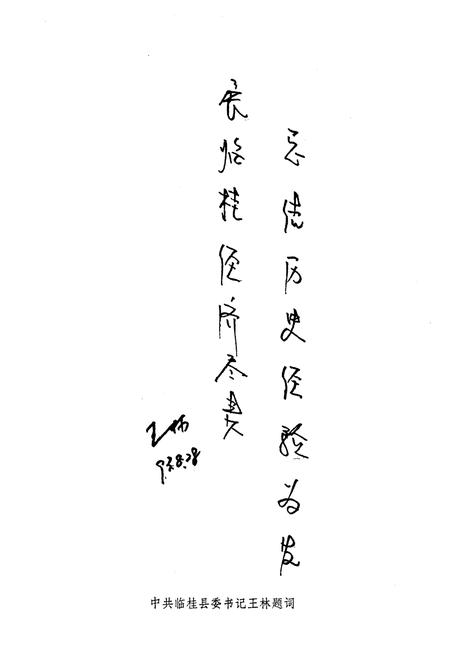 总结历史经验为发
展临桂经济尽责
王林
93.8.28
中共临桂县委书记王林题词